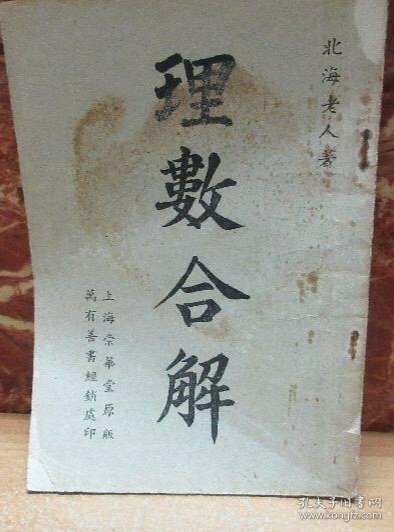 北海老人著
理數合解
上海崇華堂原版
萬有善書經銷處印
孔夫子旧书网
www.kongfz.com